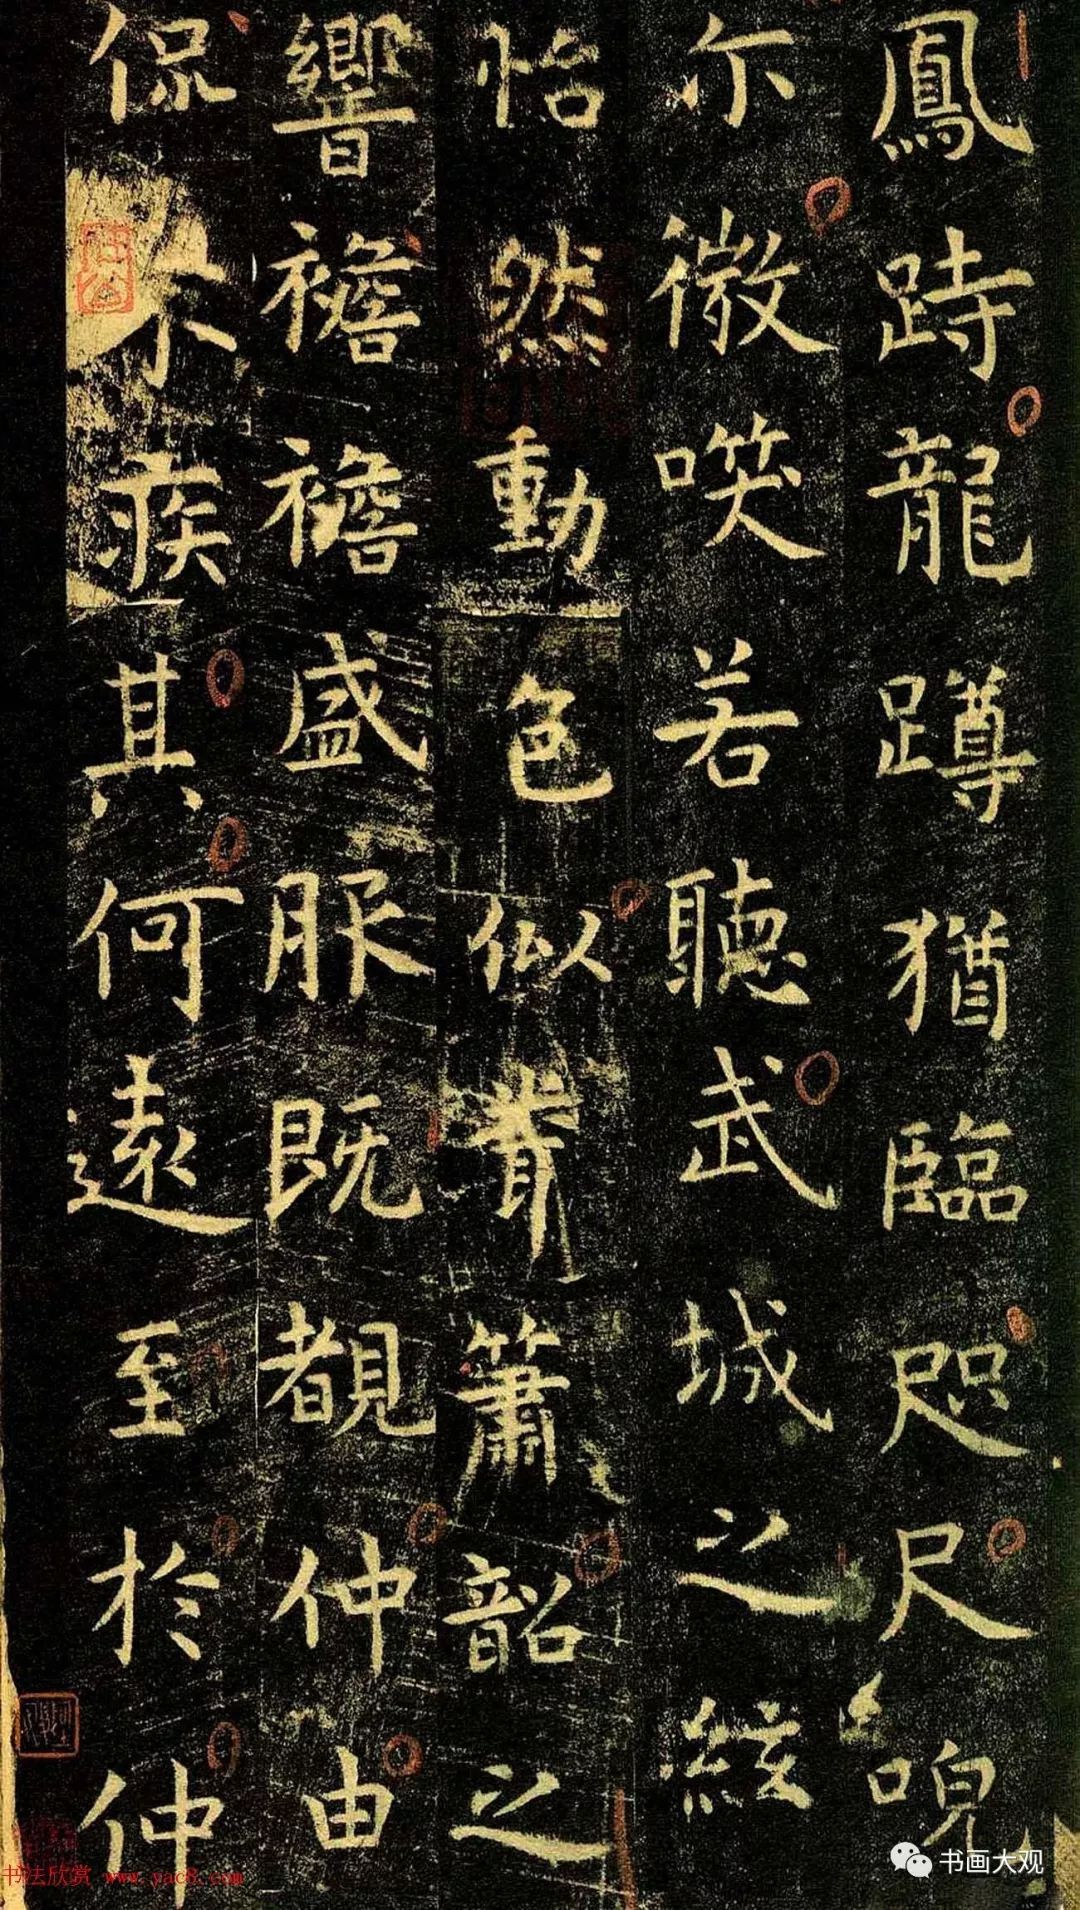 鳳跱龍蹲猶臨咫尺㕙
尒微噗若聽武城之絃
怡然動色似聞簫韶之
響襜襜盛服既覩仲由
侃尒疾其何遠至於仲
书画大观
书法欣赏 www.yac8.com